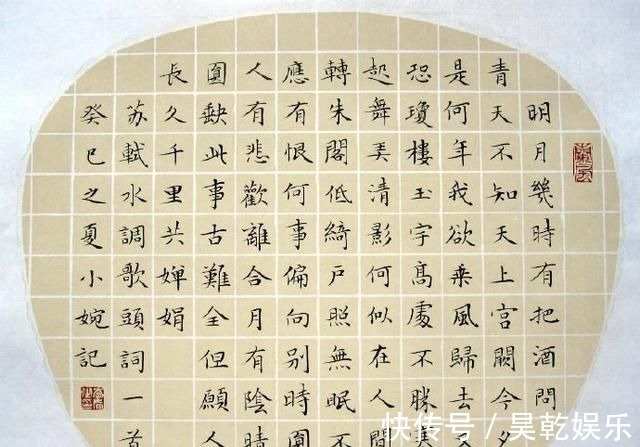 明月幾時有把酒問
青天不知天上宮闕今夕
是何年我欲乘風歸去
恐瓊樓玉宇高處不勝寒
起舞弄清影何似在人間
轉朱閣低綺戶照無眠不
應有恨何事偏向別時圓
人有悲歡離合月有陰晴
圓缺此事古難全但願人
長久千里共嬋娟
苏軾水調歌頭詞一首
癸巳之夏小婉記
快传号／昊乾娱乐